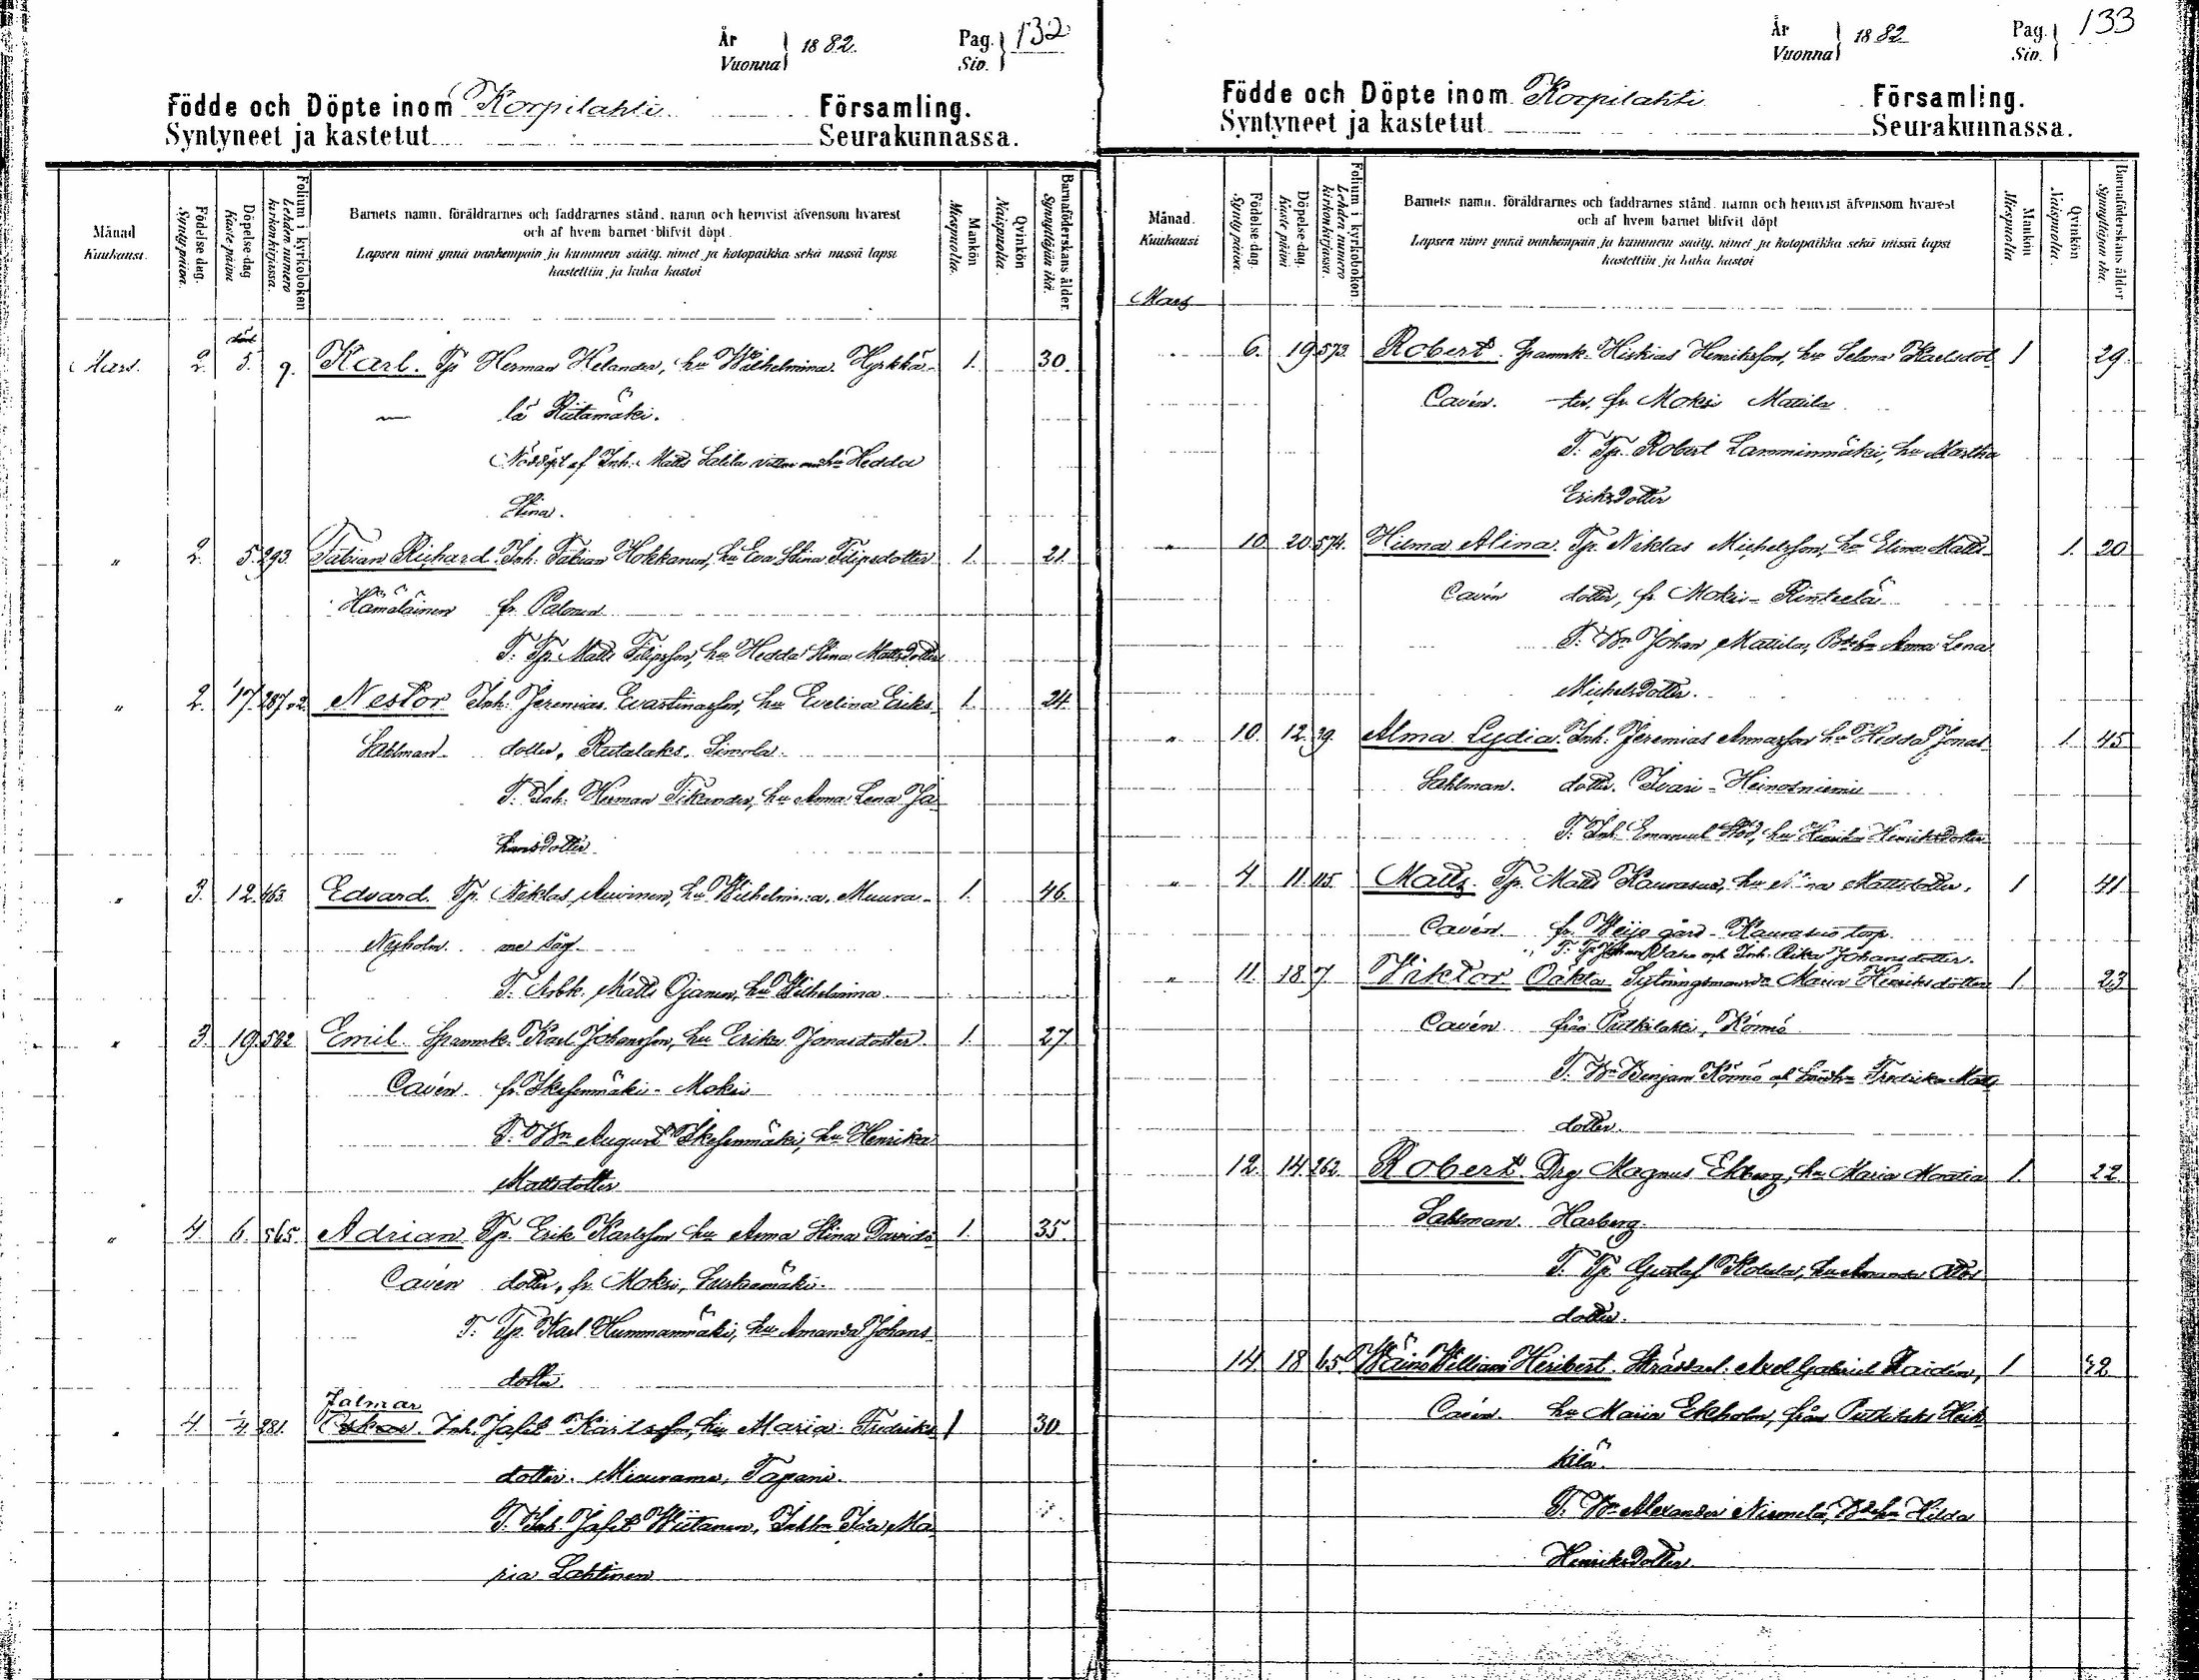 År
Vuonna } 1882.
Pag.
Siv. } 132
Födde och Döpte inom Korpilahti Församling.
Syntyneet ja kastetut Seurakunnassa.
Månad
Kuukausi.
Födelse dag.
Syntypäivä.
Döpelse-dag
Kaste päivä
Folium i kyrkoboken
Lehden numero
kirkonkirjassa.
Barnets namn, föräldrarnes och faddrarnes stånd, namn och hemvist äfvensom hvarest
och af hvem barnet blifvit döpt.
Lapsen nimi ynnä vanhempain ja kummein sääty, nimet ja kotopaikka sekä missä lapsi
kastettiin ja kuka kastoi
Mankön
Miespuolia.
Qvinkön
Naispuolia.
Barnaföderskans ålder.
Synnyttäjän ikä.
Mars. 2. 5. 9. Karl. Tp. Herman Helander, hu Wilhelmina. Hyrkkä- 1. 30.
lä Riitamäki.
Nöddöpt af Inh. Matts Salila hu Hedda
Stina.
" 2. 5. 293. Fabian Richard. Inh. Fabian Hokkanen, hu Eva Stina Filipsdotter 1. 21.
Hämäläinen fr. Palonen
T. Tp. Matts Filipsson, hu Hedda Stina Mattsdotter
" 2. 17. 287 Nestor Inh. Jeremias Evastinasson, hu Evelina Eriks- 1. 24.
Sahlman dotter, Rutalaks. Simola.
T. Inh. Herman Tikander, hu Anna Lena Jo
hansdotter
" 3. 12. 463. Edvard. Tp. Niklas Auvinen, hu Wilhelmina. Muura- 1. 46.
Nyholm. me såg.
T. Arbk. Matts Ojanen, hu Wilhelmina.
" 3. 19. 582 Emil. Spannmk. Karl Johansson, hu Erika Jonasdotter. 1. 27
Cavén fr. Ikesenmäki - Moksi
T. Bn August Ikesenmäki, hu Henrika
Mattsdotter
" 4. 6. 565. Adrian Tp. Erik Karlsson hu Anna Stina Davids- 1. 35.
Cavén dotter, fr. Moksi,
T. Tp. Karl Hummanmäki, hu Amanda Johans
dotter.
Jalmar
" 4. 281. Oskar. Inh. Jafet Karlsson, hu Maria Fredriks 1 30
dotter. Muurame, Tapani.
T. Inh. Jafet Wiitanen, Ida Ma
ria Lahtinen
År
Vuonna } 1882
Pag.
Siv. } 133
Födde och Döpte inom Korpilahti Församling.
Syntyneet ja kastetut Seurakunnassa.
Månad.
Kuukausi
Födelse dag.
Synty päivä.
Döpelse-dag.
Kaste päivä
Folium i kyrkoboken
Lehden numero
kirkonkirjassa.
Barnets namn, föräldrarnes och faddrarnes stånd, namn och hemvist äfvensom hvarest
och af hvem barnet blifvit döpt
Lapsen nimi ynnä vanhempain ja kummein sääty, nimet ja kotopaikka sekä missä lapsi
kastettiin ja kuka kastoi
Mankön
Miespuolia
Qvinkön
Naispuolia.
Barnaföderskans ålder
Synnyttäjän ikä.
Mars
" 6. 19 573. Robert. Spannmk. Hiskias Henriksson, hu Selma Karlsdot- 1 29.
Cavén. ter, fr Moksi Mattila
T. Tp. Robert Lamminmäki, hu Martha
Eriksdotter
" 10 20 574. Hilma Alina. Tp. Niklas Michelsson, hu Elina Matts- 1. 20
Cavén dotter, fr. Moksi - Rinteelä
T. Bn Johan Mattila, Anna Lena
Michelsdotter.
" 10. 12. 29. Alma Lydia. Inh. Jeremias Annasson hu Hedda Jonas 1. 45
Sahlman. dotter. Ivari - Heinosniemi
T. Inh. Emanuel hu Henriksdotter
" 4. 11. 115. Matts. Tp. Matts Kaurasuo, hu Mattsdotter. 1 41
Cavén fr. Weijo gård - Kaurasuo torp.
T. Tp. Johan och Inh. Rika Johansdotter.
" 11. 18 7 Viktor Oäkta Sytningsmans Maria Henriksdotter 1. 23
Cavén från Putkilahti, Körnö
T. Bn Benjam Körnö Fredrika Matts
dotter.
12. 14. 262. Robert. Drg Magnus Ekberg, hu Maria 1. 22
Sahlman. Hasberg.
T. Tp. Gustaf hu Amanda
dotter.
14. 18 65 Wäinö William Heribert. Axel Gabriel 1 42
Cavén. hu Maria Ekholm, från Putkilaks Heik
kilä.
T. Bn Alexander Niemelä, Hilda
Henriksdotter.